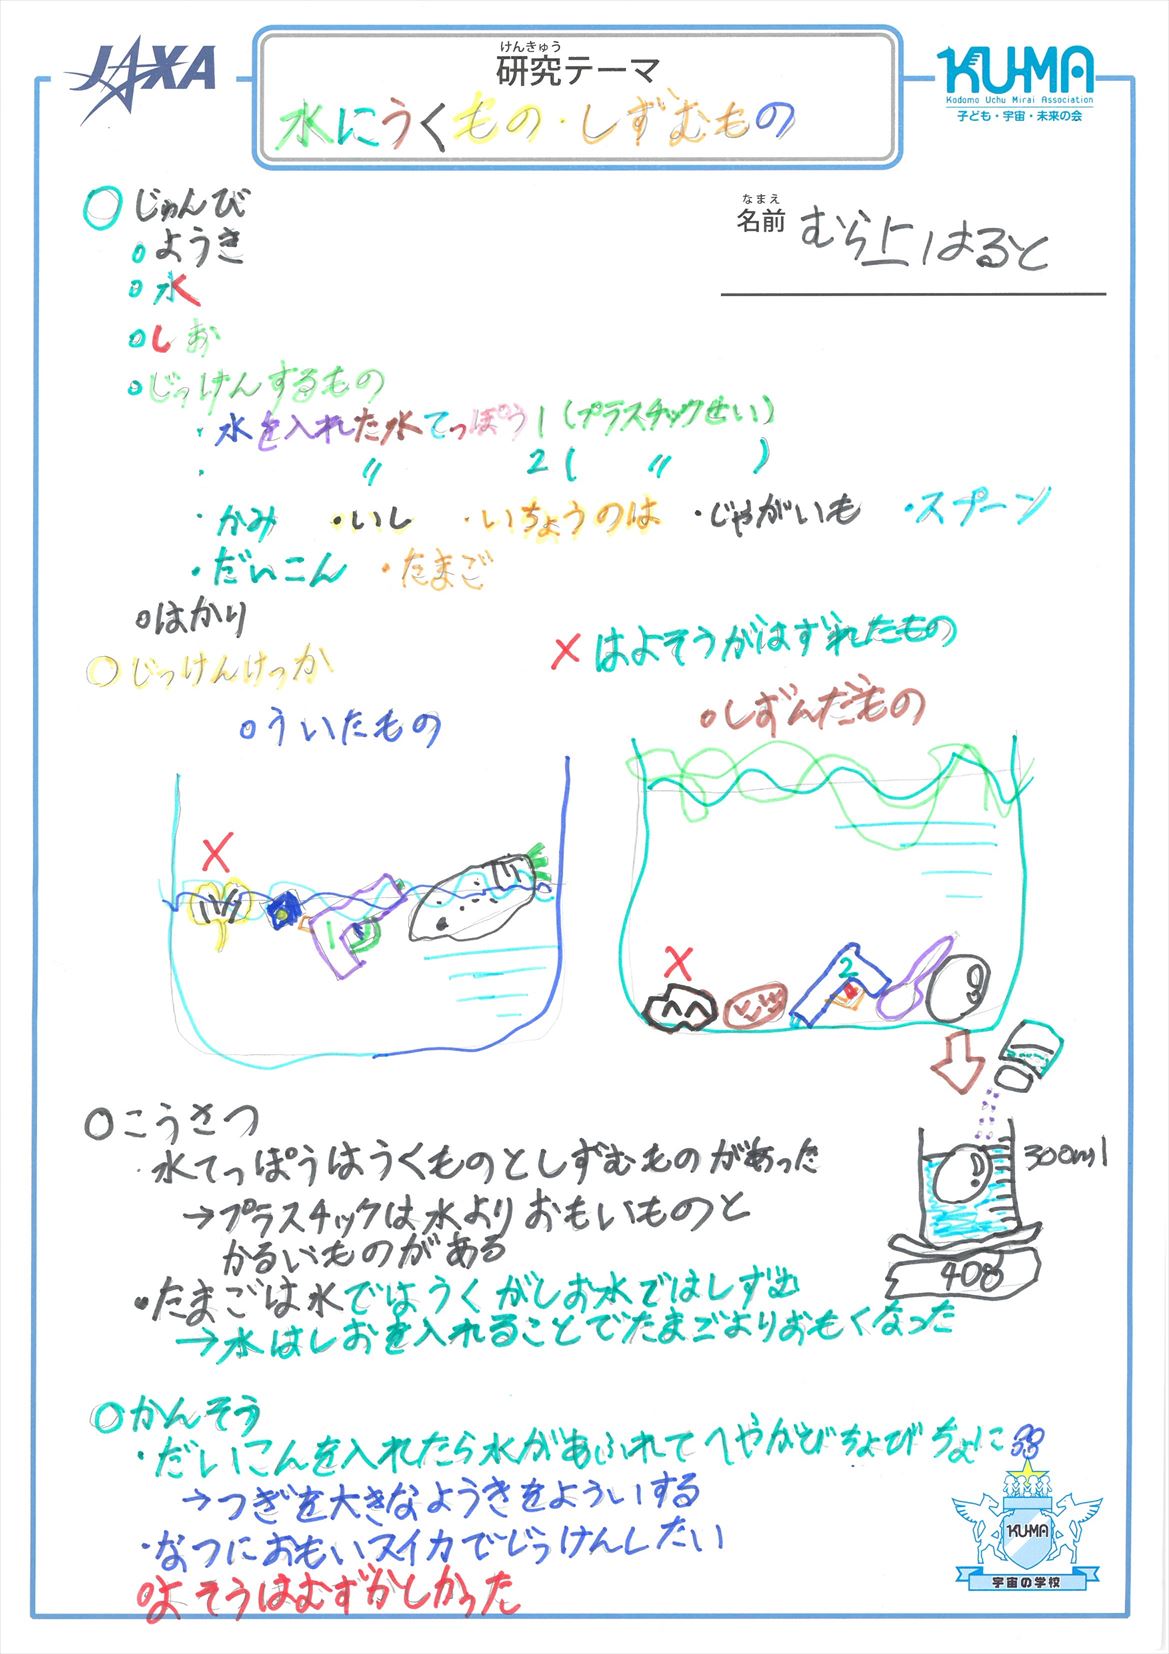 JAXA
けんきゅう
研究テーマ
水にうくもの・しずむもの
KU-MA
Kodomo Uchu Mirai Association
子ども・宇宙・未来の会
なまえ
名前 むら上はると
○じゅんび
○ようき
○水
○しお
○じっけんするもの
・水を入れた水てっぽう1(プラスチックせい)
・ 〃 2( 〃 )
・かみ ・いし ・いちょうのは ・じゃがいも ・スプーン
・だいこん ・たまご
○はかり
×はよそうがはずれたもの
○じっけんけっか
○ういたもの
○しずんだもの
×
1
×
2
○こうさつ
・水てっぽうはうくものとしずむものがあった
→プラスチックは水よりおもいものと
かるいものがある
300ml
40g
・たまごは水ではうくがしお水ではしずむ
→水はしおを入れることでたまごよりおもくなった
○かんそう
・だいこんを入れたら水があふれてへやがびちょびちょに
→つぎを大きなようきをよういする
・なつにおもいスイカでじっけんしたい
○よそうはむずかしかった
KU-MA
宇宙の学校